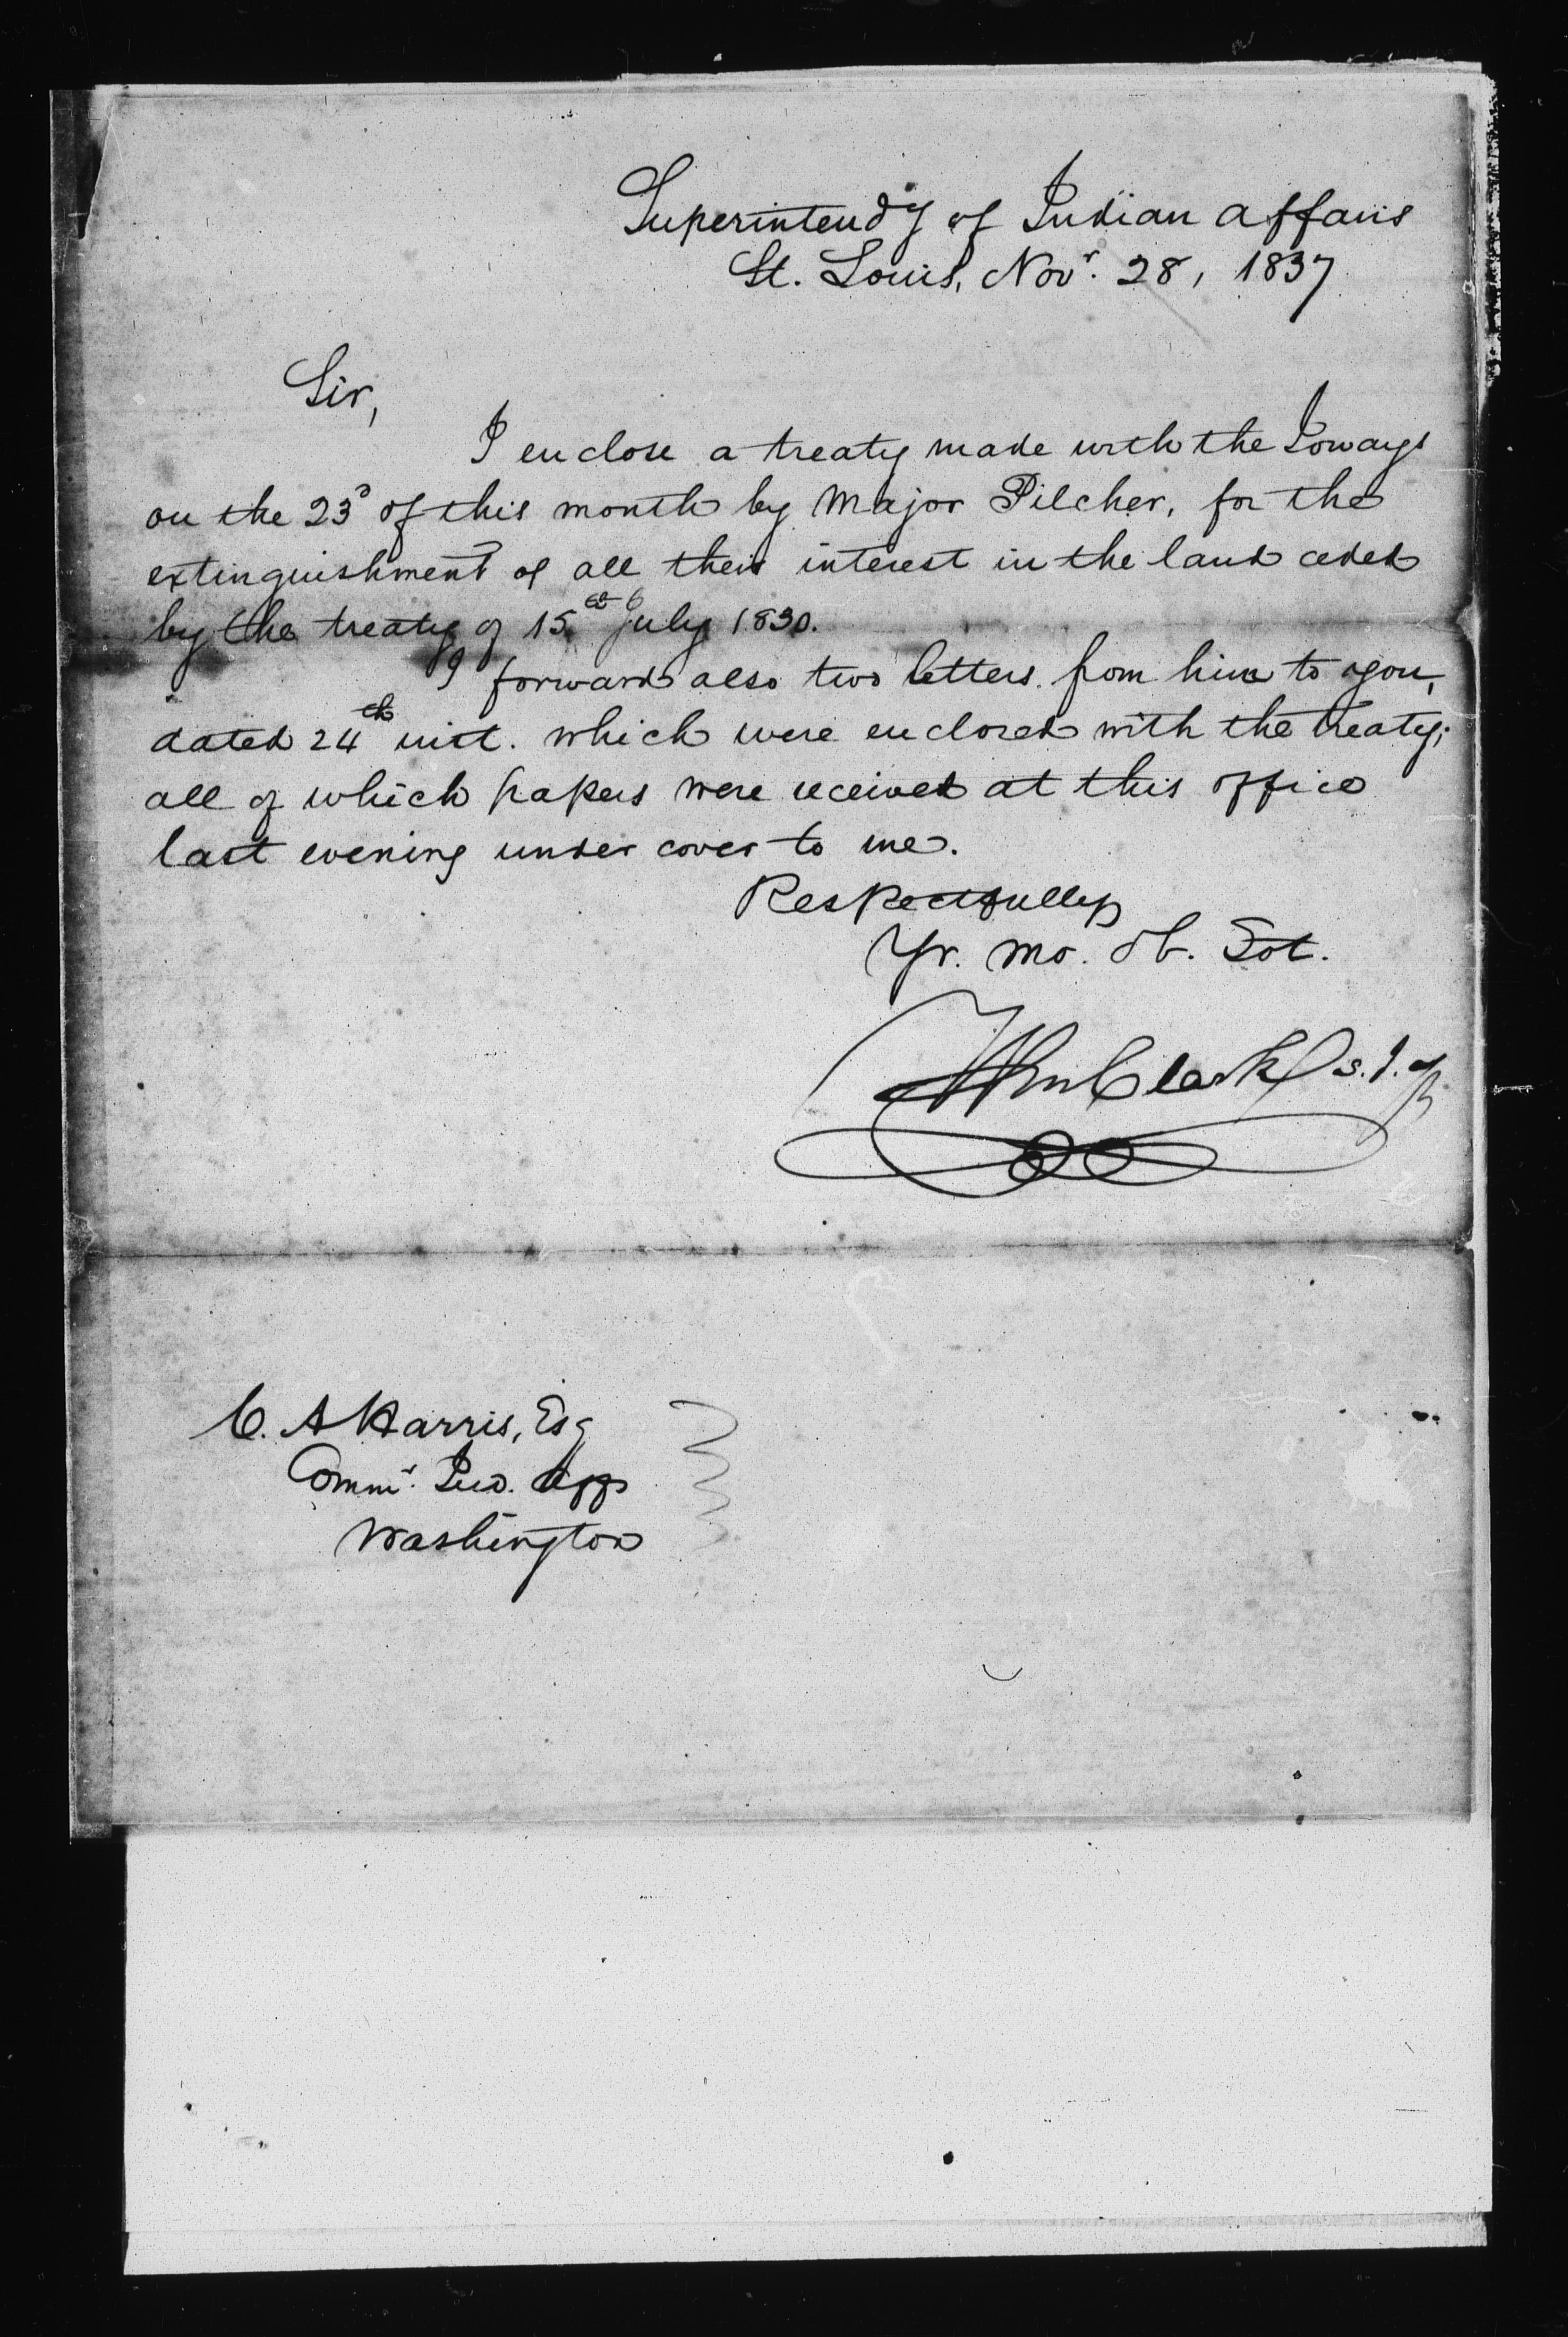 Superintendy of Indian Affairs
St. Louis, Novr. 28, 1837
Sir,
I enclose a treaty made with the Ioways
on the 23d of this month by Major Pilcher, for the
extinguishment of all their interest in the land ceded
by the treaty of 15th July 1830.
I forward also two letters from him to you,
dated 24th inst. which were enclosed with the treaty;
all of which papers were received at this office
last evening under cover to me.
Respectfully
Yr. mo. ob. Svt.
Wm Clark S. I. Aff
C. A Harris, Esq
Commr. Ind. Affs
Washington